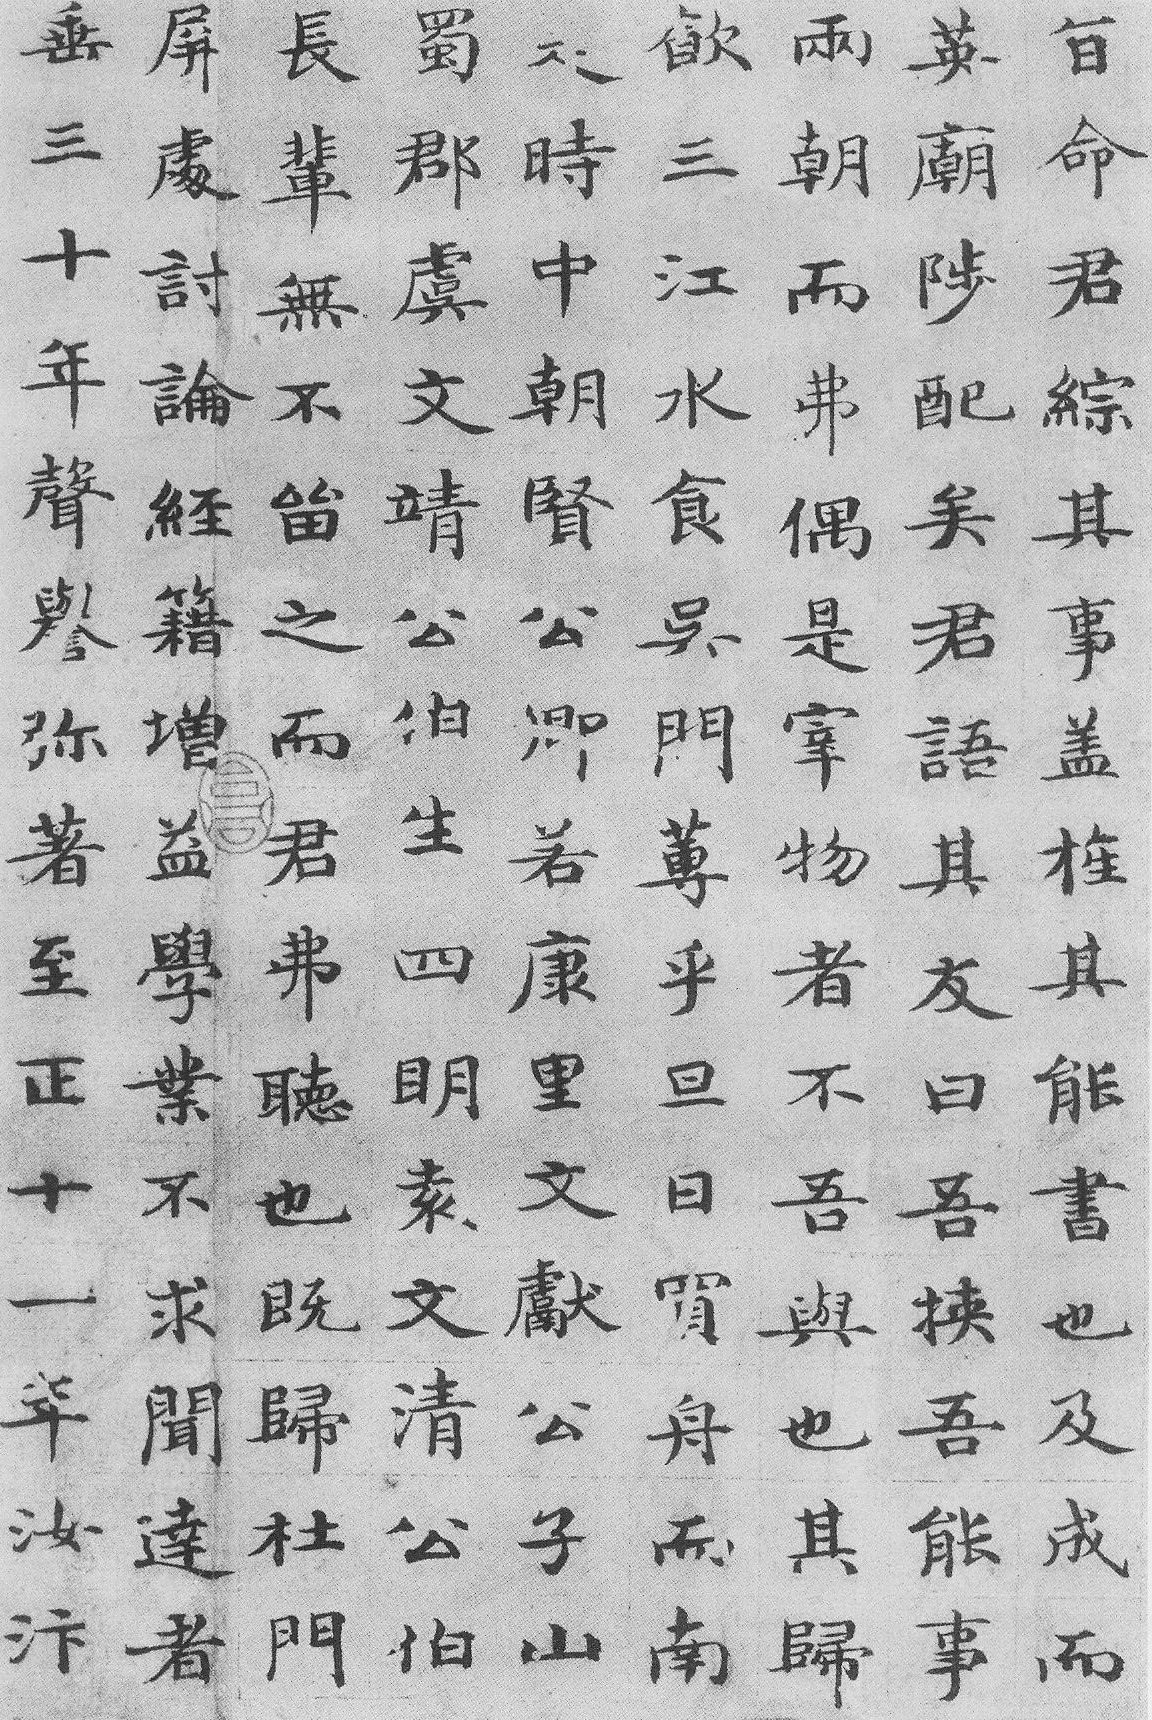 旨命君綜其事盖推其能書也及成而
英廟陟配矣君語其友曰吾挾吾能事
兩朝而弗偶是宰物者不吾與也其歸
㱃三江水食吳門蓴乎旦日買舟而南
之時中朝賢公卿若康里文獻公子山
蜀郡虞文靖公伯生四明袁文清公伯
長輩無不畱之而君弗聽也既歸杜門
屏處討論經籍增益學業不求聞達者
垂三十年聲譽弥著至正十一年汝汴